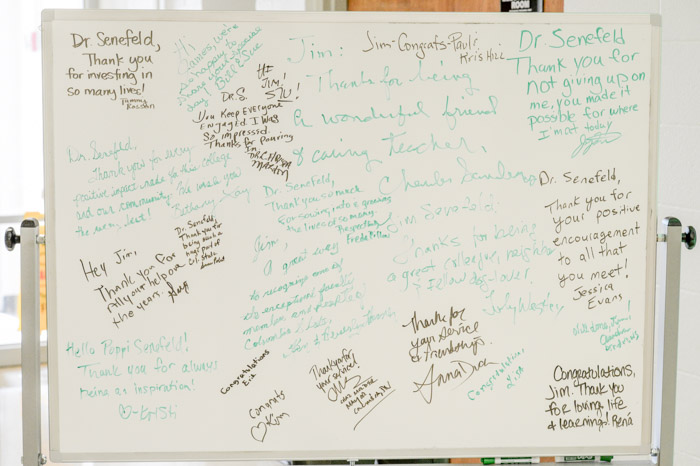 ROOM
Dr. Senefeld,
Thank you
for investing in
so many lives!
Hi
Dr. S.
You Keep Everyone
Engaged. I Was
So impressed.
Thanks for Pouring
In.
Hi
Jim!
Jim:
Thanks for being
a wonderful friend
& caring teacher.
Charles
Jim-Congrats-Paul &
Kris Hill
Dr Senefeld
Thank you for
not giving up on
me, you made it
possible for where
I'm at today
Dr. Senefeld,
Thank you for every
positive impact made to this college
and our community. We wish you
the very best!
Bethany
Dr. Senefeld,
Thank you so much
for sowing into & growing
the lives of so many.
Respectfully,
Dr. Senefeld,
Thank you for
being such a
huge part of
Hey Jim,
Thank you for
all your help over
the years.
Jim,
A great way
to recognize one of
the exceptional faculty
members and
Columbia State.
Jim Senefeld.
Thanks for being
a great colleague, neighbor
& fellow dog-lover.
Dr. Senefeld,
Thank you for
your positive
encouragement
to all that
you meet!
Jessica
Evans
Hello Poppi Senefeld!
Thank you for always
being an inspiration!
-Kristi
Congratulations
Eric
Congrats
Kim
Thank you for
your service!
Thank you for
your service
& friendship.
Anna
Congratulations
Congratulations,
Jim. Thank you
for loving life
& learning! Rená